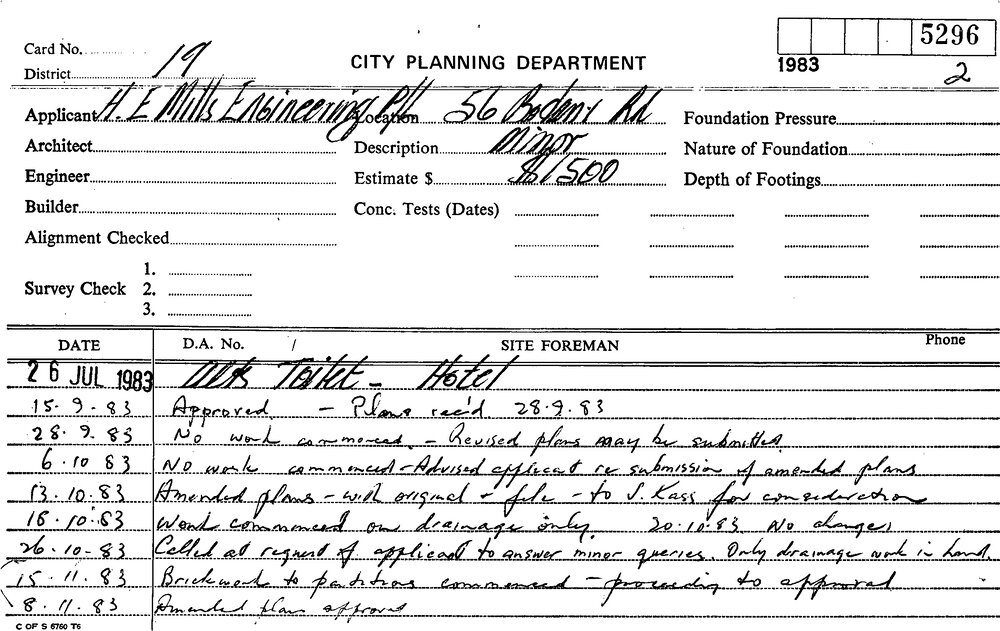 5296
Card No. 19
CITY PLANNING DEPARTMENT
1983
District
2
Applicant H. E Mills Engineering P/L Location 56 Bodeny Rd Foundation Pressure
Architect Description Minor Nature of Foundation
Engineer Estimate $ $1500 Depth of Footings
Builder Conc. Tests (Dates)
Alignment Checked
1.
Survey Check 2.
3.
DATE D.A. No. SITE FOREMAN Phone
26 JUL 1983 Alts Toilet - Hotel
15.9.83 Approved - Plans rec'd 28.9.83
28.9.83 No work commenced - Revised plans may be submitted
6.10 83 No work commenced - Advised applicant re submission of amended plans
13.10.83 Amended plans - with original + file - to J. Kass for consideration
18.10.83 Work commenced on drainage only. 20.10.83 No change
26.10-83 Called at request of applicant to answer minor queries. Only drainage work in hand.
15.11.83 Brickwork to partitions commenced - proceeding to approval
8.11.83 Amended plans approved
C OF S 6760 T6